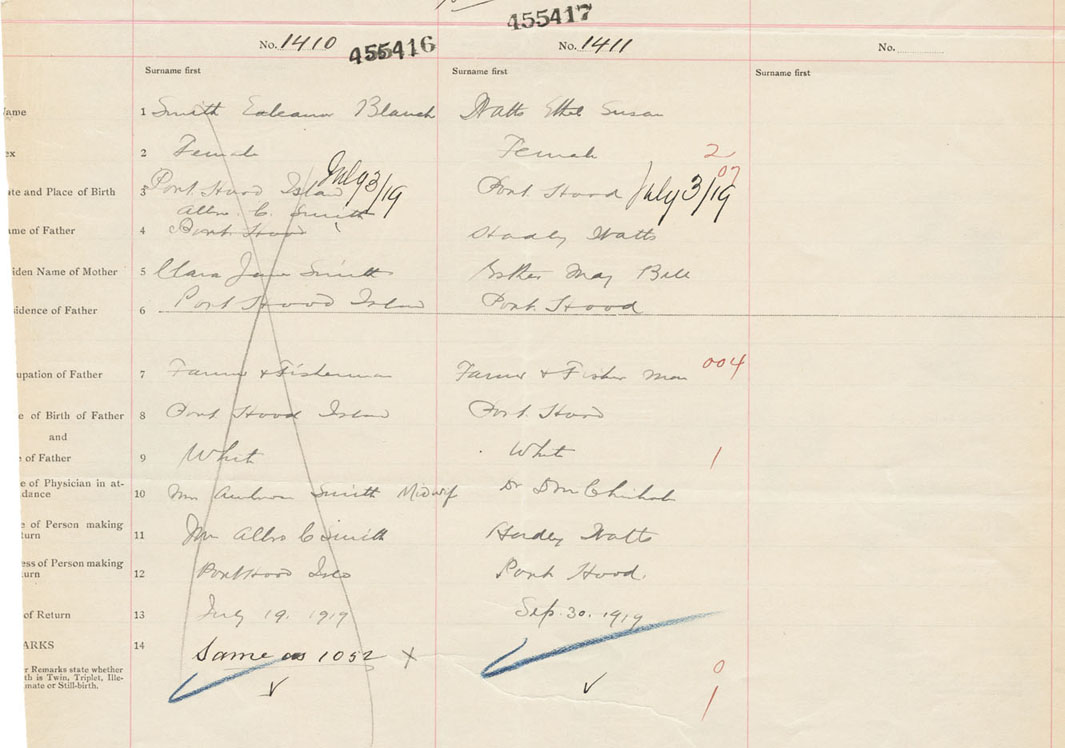 455417
No. 1410 455416 No. 1411 No.
Surname first Surname first Surname first
ame 1 Smith Eoleanor Blanch Watts Ethel Susan
ex 2 Female Female 2
07
ate and Place of Birth 3 Port Hood Island July 3/19 Port Hood July 3/19
Allro. C. Smith
ame of Father 4 Port Hood Watts
iden Name of Mother 5 Clara Jane Smith Esther May Bell
idence of Father 6 Port Hood Island Port Hood
upation of Father 7 Farmer & Fisherman Farmer & Fisher man 004
e of Birth of Father 8 Port Hood Island Port Hood
and
of Father 9 White White 1
e of Physician in at-
dance 10 Smith Midwif Dr
e of Person making
turn 11 Allro C Smith Watts
ess of Person making
urn 12 Port Hood Isld Port Hood.
of Return 13 July 19. 1919 Sep. 30. 1919
ARKS 14 Same as 1052 X
r Remarks state whether
th is Twin, Triplet, Ille-
mate or Still-birth.
0
1